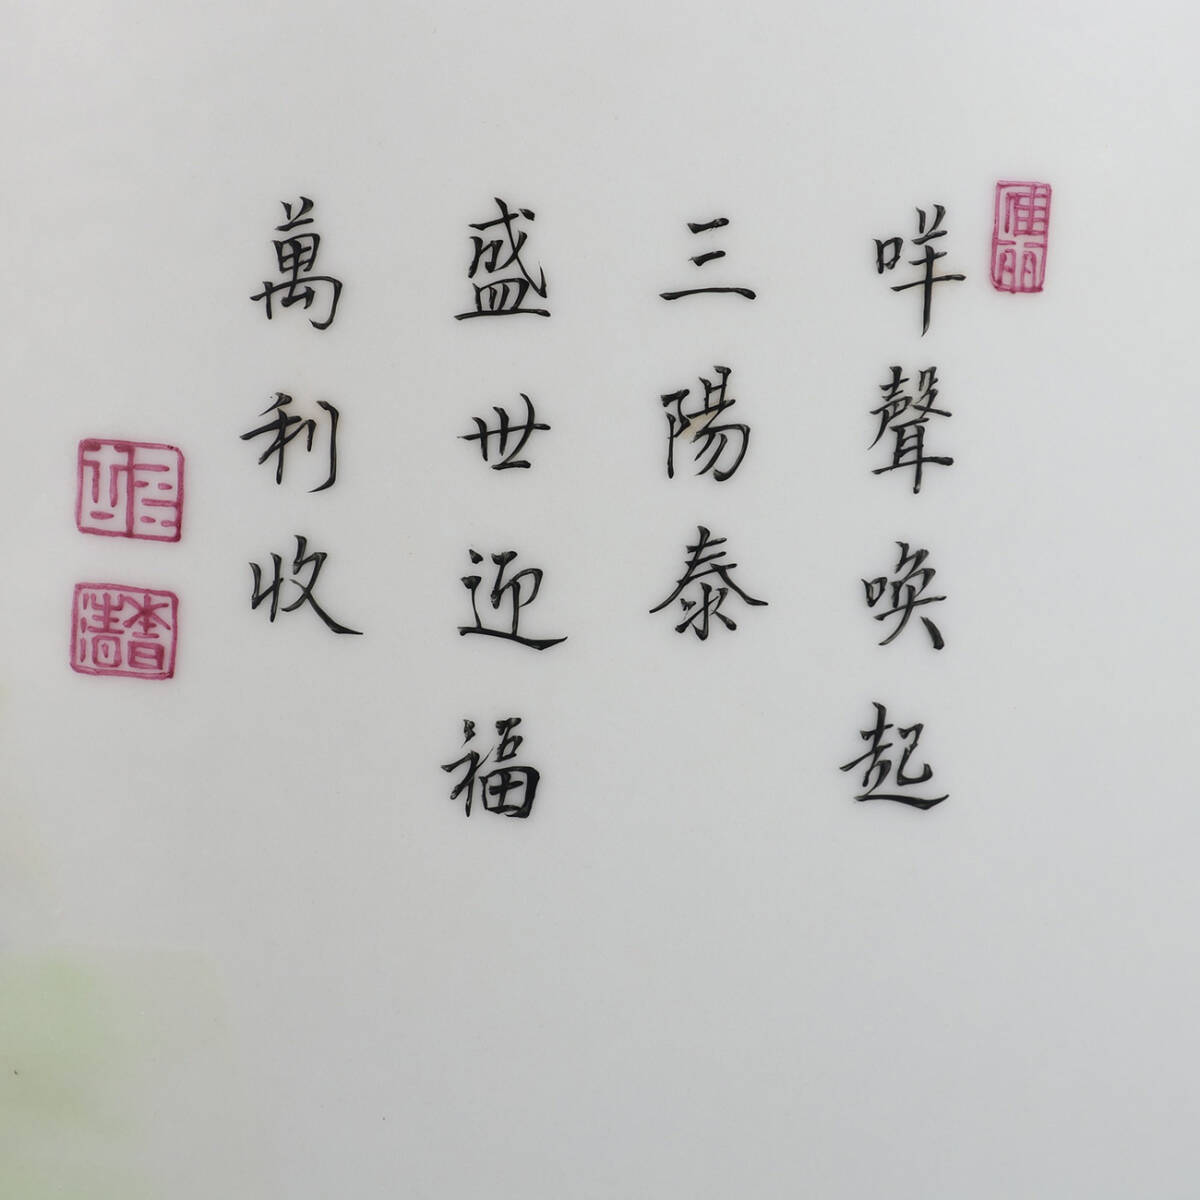 咩聲喚起
三陽泰
盛世迎福
萬利收